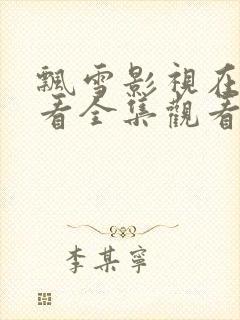 飄雪影視在
看全集觀看
李某寧